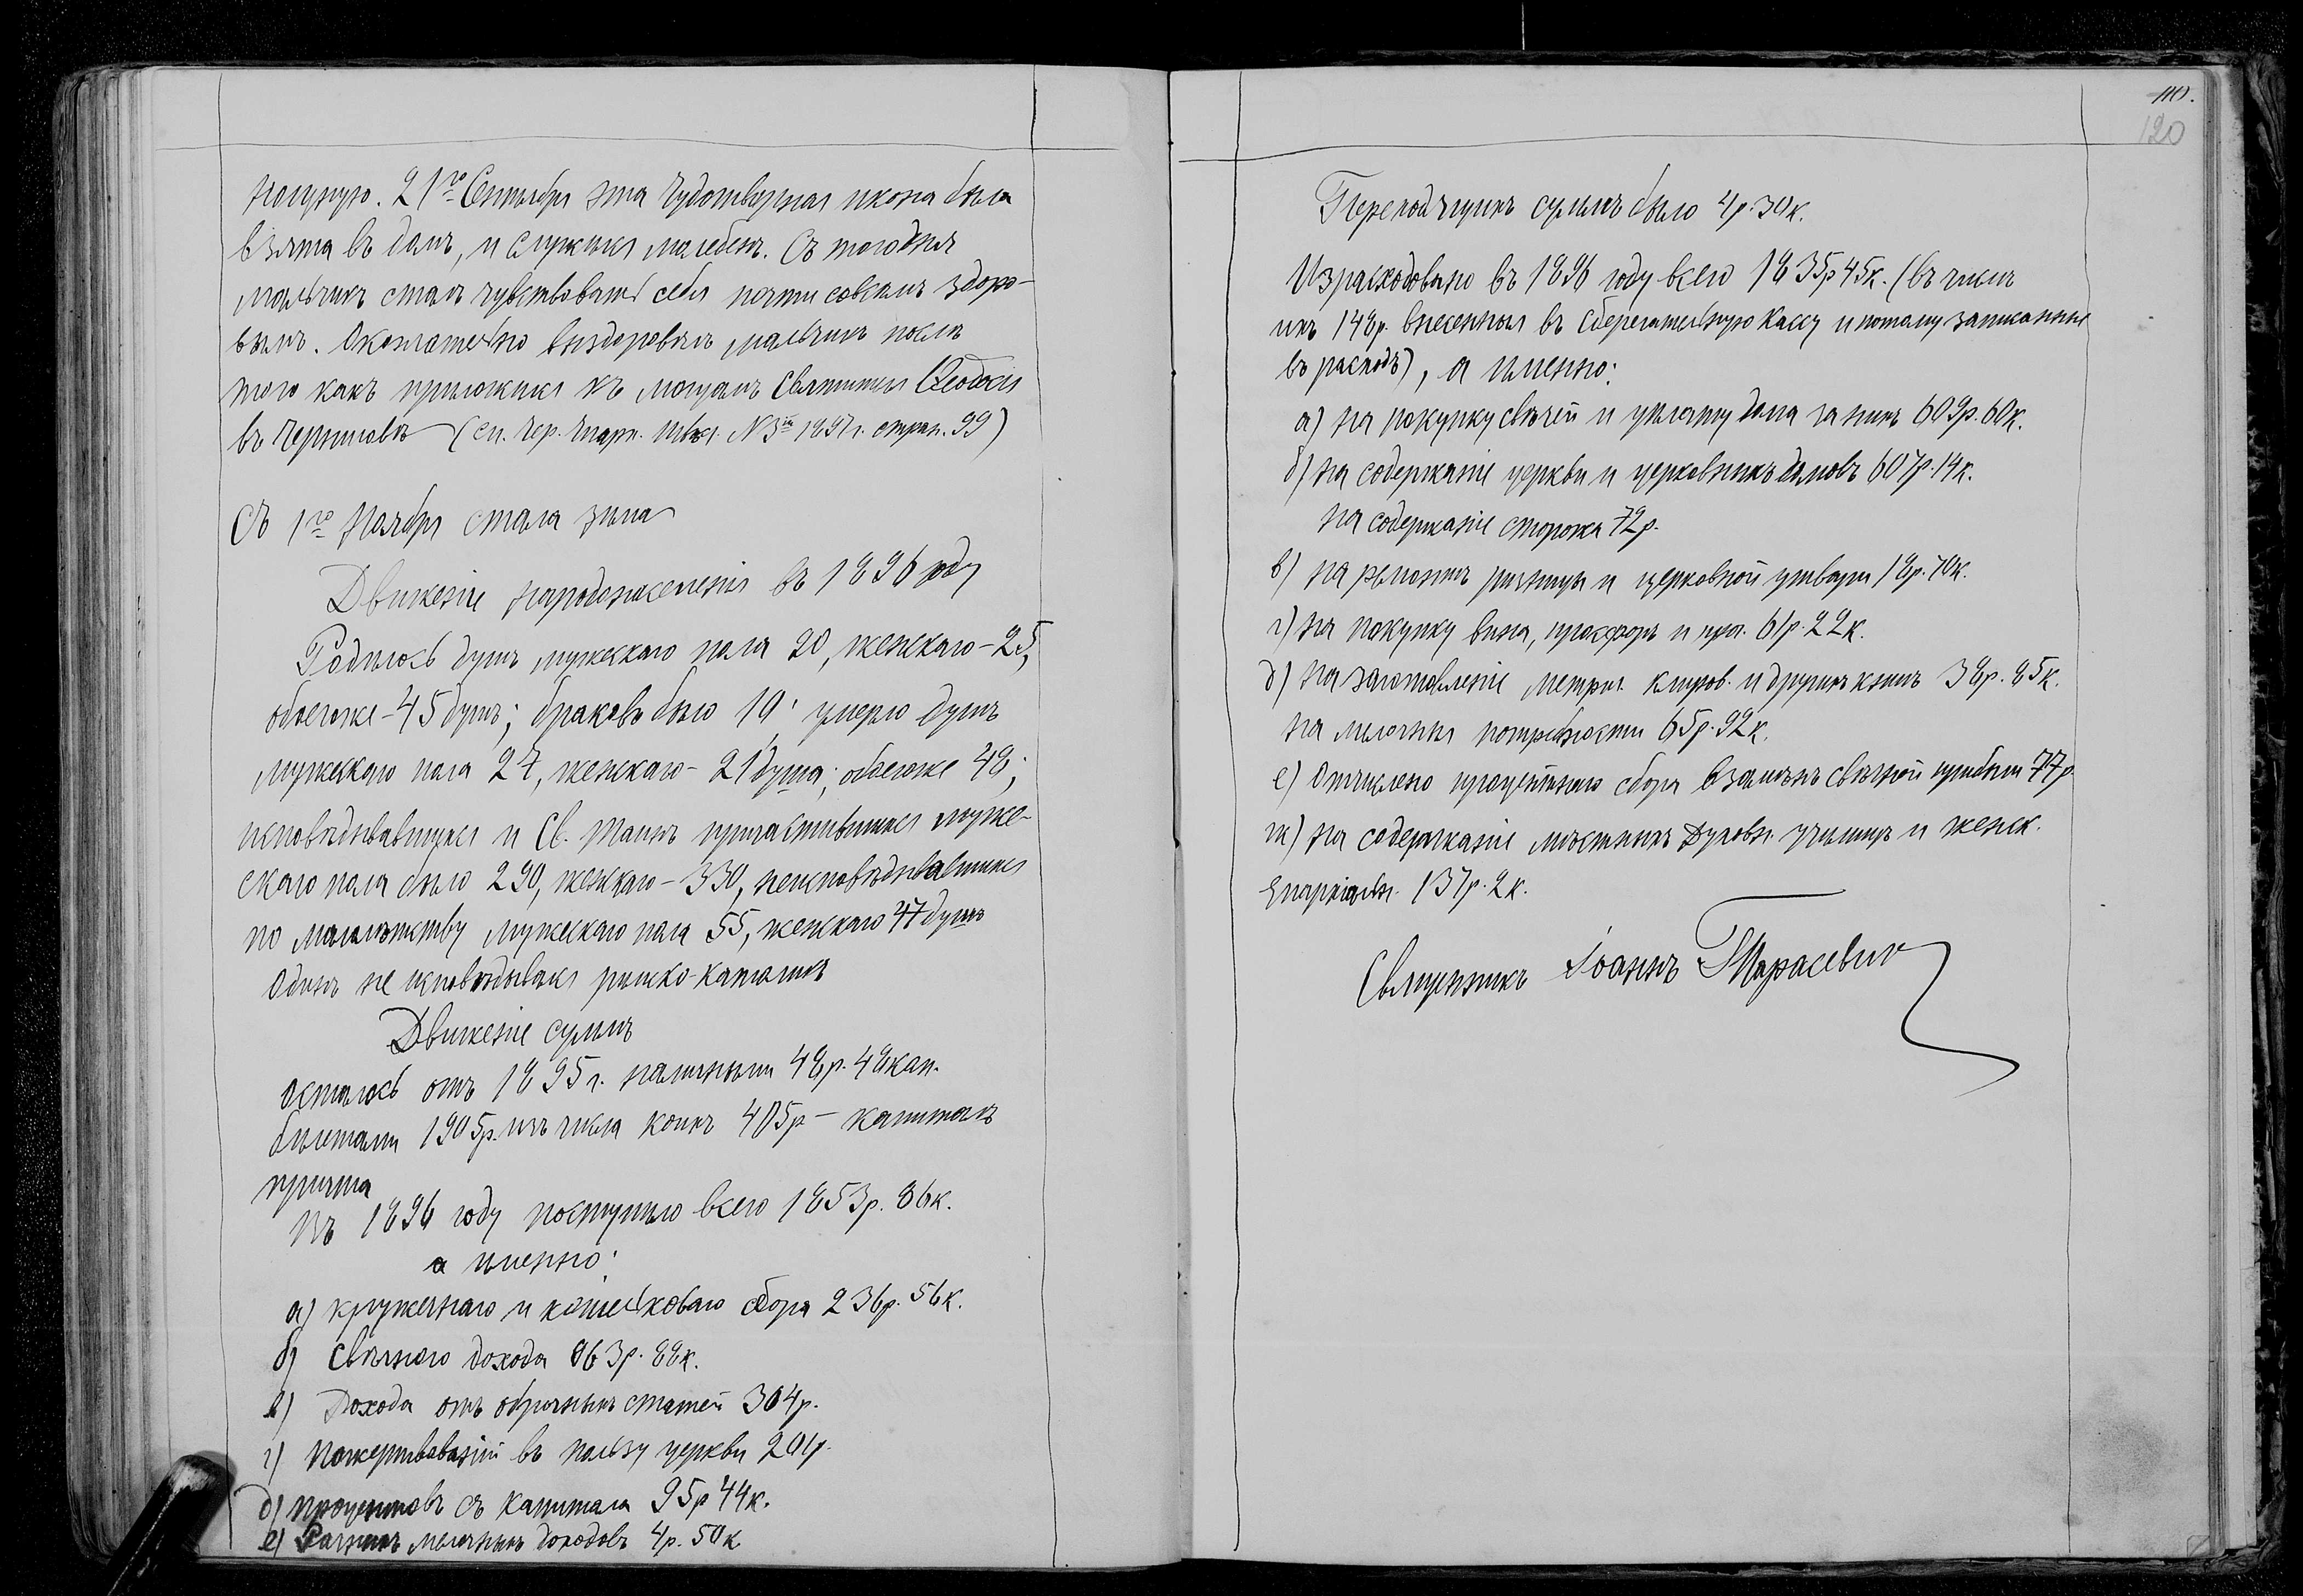 110.
120
ногуную. 21го Сентября эта Чудотворная икона была
взята въ домъ, и служился молебенъ. Съ того дня
мальчикъ сталъ чувствовать себя почти совсѣмъ здоро-
вымъ. Окончательно выздоровѣлъ мальчикъ послѣ
того какъ приложился къ мощамъ Святителя Ѳеодосія
въ Черниговѣ (см. Чер. Епарх. Извѣст. № 3й 1897 г. стран. 99)
Съ 1го Ноября стала зима
Движеніе народонаселенія въ 1896 году
Родилось душъ мужескаго пола 20, женскаго - 25,
обоегоже - 45 душъ; браковъ было 10; умерло душъ
мужескаго пола 27, женскаго - 21 душа; обоегоже 48;
исповѣдывавшихся и Св. Таинъ причастившихся муже-
скаго пола было 290, женскаго - 330, неисповѣдывавшихся
по малолѣтству мужескаго пола 55, женскаго 47 душъ
Одинъ не исповѣдывался римско-католикъ
Движеніе суммъ
Осталось отъ 1895 г. наличными 48 р. 48 коп.
билетами 1905 р. изъ числа коихъ 405 р - капиталъ
причта
Въ 1896 году поступило всего 1853 р. 86 к.
а именно:
а) кружечнаго и кошельковаго сбора 236 р. 56 к.
б) Свѣчного дохода 863 р. 88 к.
в) Дохода отъ оброчныхъ статей 304 р.
г) Пожертвованій въ пользу церкви 201 р.
д) Процентовъ съ капитала 95 р 44 к.
е) Разныхъ мелочныхъ доходовъ 4 р. 50 к
Переходящихъ суммъ было 4 р. 30 к.
Израсходовано въ 1896 году всего 1835 р 45 к. (въ числѣ
ихъ 148 р. внесенныя въ Сберегательную Кассу и потому записанные
въ расходъ), а именно:
а) на покупку свѣчей и уплату долга за нихъ 609 р. 60 к.
б) на содержаніе церкви и церковныхъ домовъ 607 р. 14 к.
на содержаніе сторожа 72 р.
в) на ремонтъ ризницы и церковной утвари 18 р. 70 к.
г) на покупку вина, просфоръ и проч. 61 р. 22 к.
д) на заготовленіе метрич. клиров. и другихъ книгъ 38 р. 85 к.
на мелочныя потребности 65 р. 92 к.
е) Отчислено процентнаго сбора взамѣнъ свѣчной прибыли 77 р
ж) на содержаніе мѣстныхъ Духовн. училищъ и женск.
Епархіальн. 137 р. 2 к.
Священникъ Іоаннъ Тарасевич